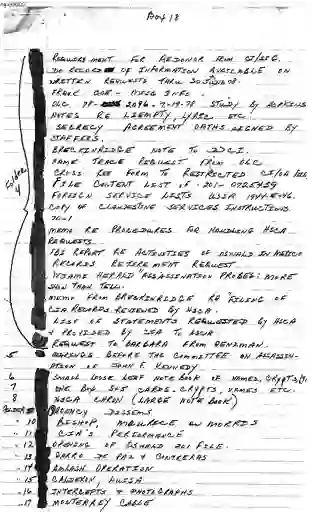 Box 18
REQUIREMENT FOR AEDONOR FROM CI/SIG.
NO RECORD OF INFORMATION AVAILABLE ON
WRITTEN REQUESTS THRU 30 JUN 78.
FRANK INFO.
OLC 78- 2096 - 7-19-78 STUDY BY HOPKINS
NOTES RE LIEMPTY, LYRIC ETC.
SECRECY AGREEMENT OATHS SIGNED BY
STAFFERS.
BRECKINRIDGE NOTE TO DDCI.
NAME TRACE REQUEST FROM OLC
CROSS REF FORM TO RESTRICTED
FILE CONTENT LIST OF 201-
FOREIGN SERVICE LISTS USSR
COPY OF CLANDESTINE SERVICES INSTRUCTIONS
70-1
MEMO RE PROCEDURES FOR HANDLING HSCA
REQUESTS.
FBI REPORT RE ACTIVITIES OF OSWALD IN MEXICO
RECORDS RETIREMENT REQUEST.
MIAMI HERALD "ASSASSINATION PROBES: MORE
SHOW THAN TELL.
MEMO FROM BRECKINRIDGE RE FILING OF
CIA RECORDS REVIEWED BY HSCA.
LIST OF STATEMENTS REQUESTED BY HSCA
& PROVIDED BY CIA TO HSCA
REQUEST TO BARBARA FROM
Folder
4
5 HEARINGS BEFORE THE COMMITTEE ON ASSASSIN-
ATION OF JOHN F. KENNEDY
6 SMALL LOOSE LEAF NOTE BOOK OF NAMES, CRYPTS
7 ONE BOX 3x5 CARDS. CRYPTS, NAMES ETC.
8 HSCA CHRON (LARGE NOTE BOOK)
FOLDER 9 AGENCY DISSEMS.
" 10 BISHOP, MORRIS
" 11 CIA'S PERFORMANCE
" 12 OPENING OF OSWALD 201 FILE.
" 13 DURRO DE PAZ & CONTRERAS
" 14 AMLASH OPERATION
" 15 CALDERON, LUISA
" 16 INTERCEPTS & PHOTOGRAPHS
" 17 MONTERREY CABLE